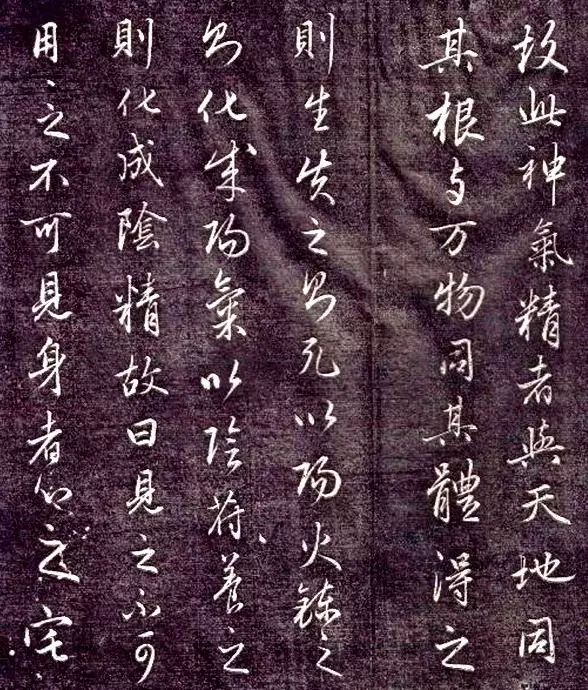 故此神氣精者與天地同
其根与万物同其體得之
則生失之則死以陽火鍊之
則化成陽氣以陰苻養之
則化成陰精故曰見之不可
用之不可見身者心之宅